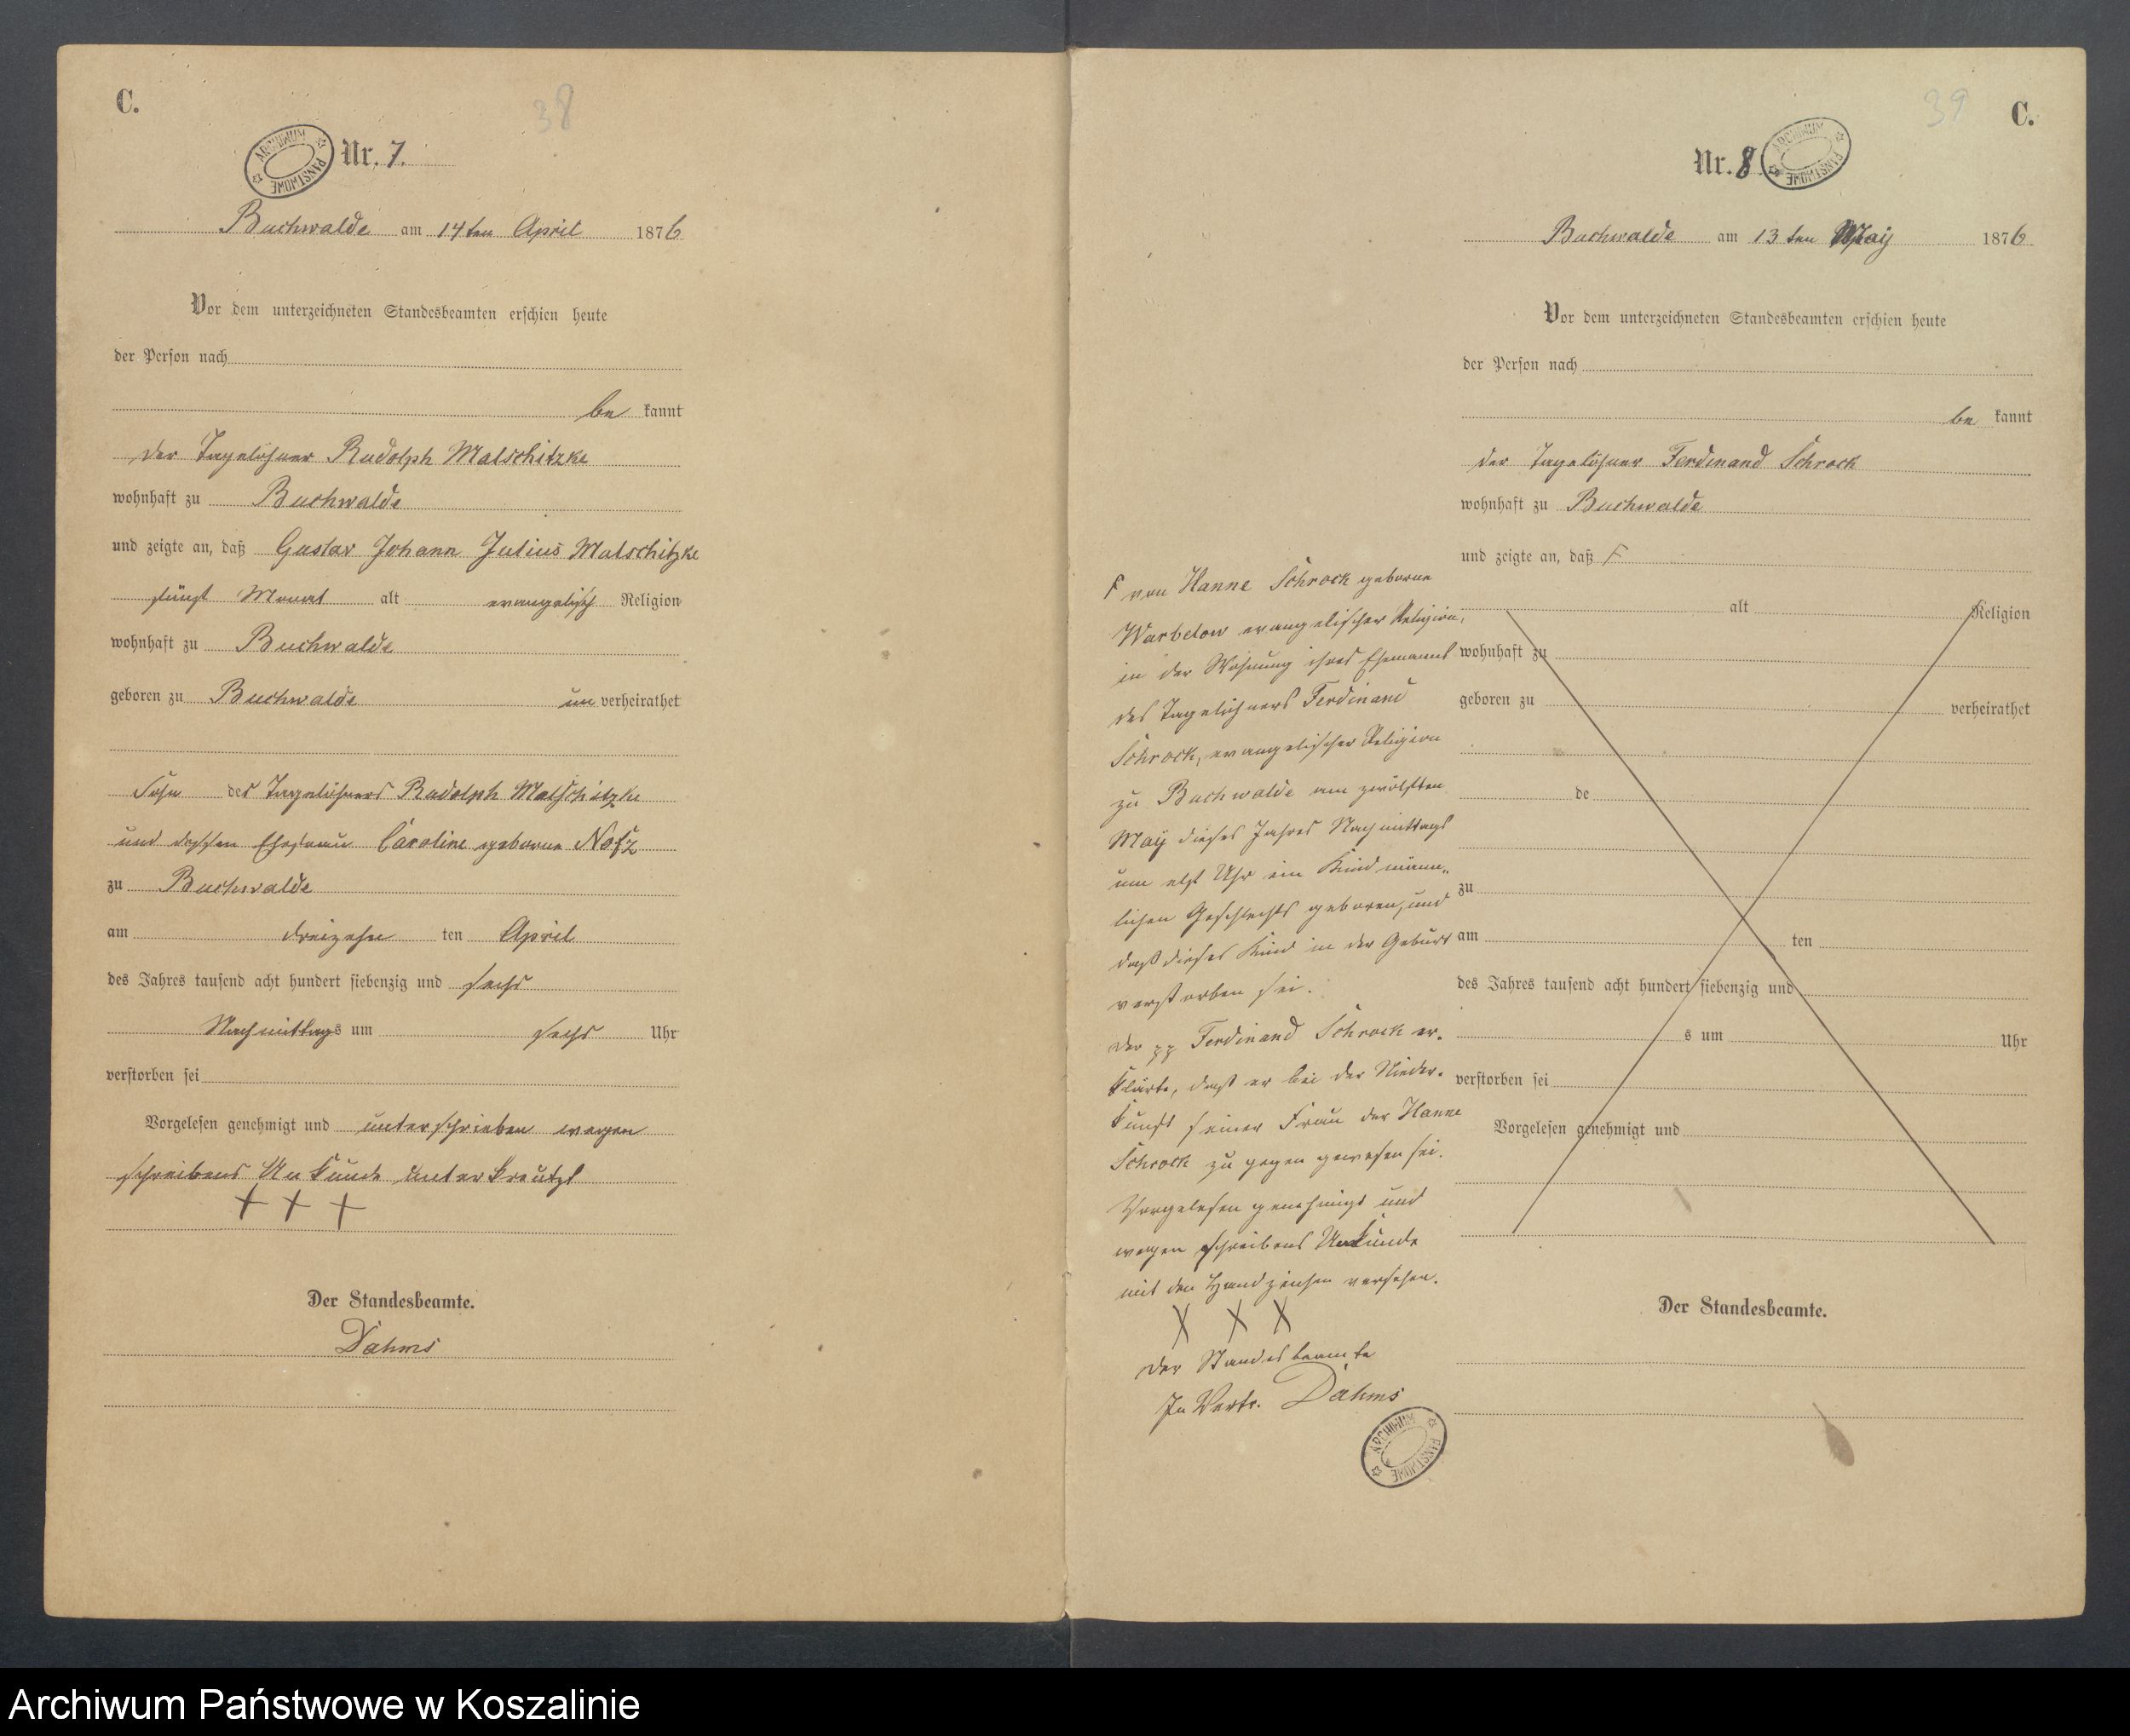 C.
38
ARCHIWUM PAŃSTWOWE
Nr. 7.
Buchwalde am 14ten April 1876
Vor dem unterzeichneten Standesbeamten erschien heute
der Person nach
be kannt
der Tagelöhner Rudolph Malschitzke
wohnhaft zu Buchwalde
und zeigte an, daß Gustav Johann Julius Malschitzke
fünf Monat alt evangelisch Religion
wohnhaft zu Buchwalde
geboren zu Buchwalde un verheirathet
Sohn des Tagelöhners Rudolph Malschitzke
und dessen Ehefrau Caroline geborne
zu Buchwalde
am dreizehn ten April
des Jahres tausend acht hundert siebenzig und sechs
Nachmittags um sechs Uhr
verstorben sei
Vorgelesen genehmigt und unterschrieben wegen
schreibens Unkunde unterkreutzt
+ + +
Der Standesbeamte.
Dahms
39
C.
Nr. 8.
ARCHIWUM PAŃSTWOWE
Buchwalde am 13ten May 1876
Vor dem unterzeichneten Standesbeamten erschien heute
der Person nach
be kannt
der Tagelöhner Ferdinand Schrock
wohnhaft zu Buchwalde
und zeigte an, daß F
alt Religion
wohnhaft zu
geboren zu verheirathet
de
zu
am ten
des Jahres tausend acht hundert siebenzig und
s um Uhr
verstorben sei
Vorgelesen genehmigt und
Der Standesbeamte.
F von Hanne Schrock geborne
Warbelow evangelischer Religion,
in der Wohnung ihres Ehemanns
des Tagelöhners Ferdinand
Schrock, evangelischer Religion
zu Buchwalde am zwölften
May dieses Jahres Nachmittags
um elf Uhr ein Kind männ-
lichen Geschlechts geboren, und
daß dieses Kind in der Geburt
verstorben sei.
Der pp Ferdinand Schrock er-
klärte, daß er bei der Nieder-
kunft seiner Frau der Hanne
Schrock zu gegen gewesen sei.
Vorgelesen genehmigt und
wegen schreibens Unkunde
mit den Handzeichen versehen.
X X X
Der Standesbeamte
In Vertr. Dahms
ARCHIWUM PAŃSTWOWE
Archiwum Państwowe w Koszalinie